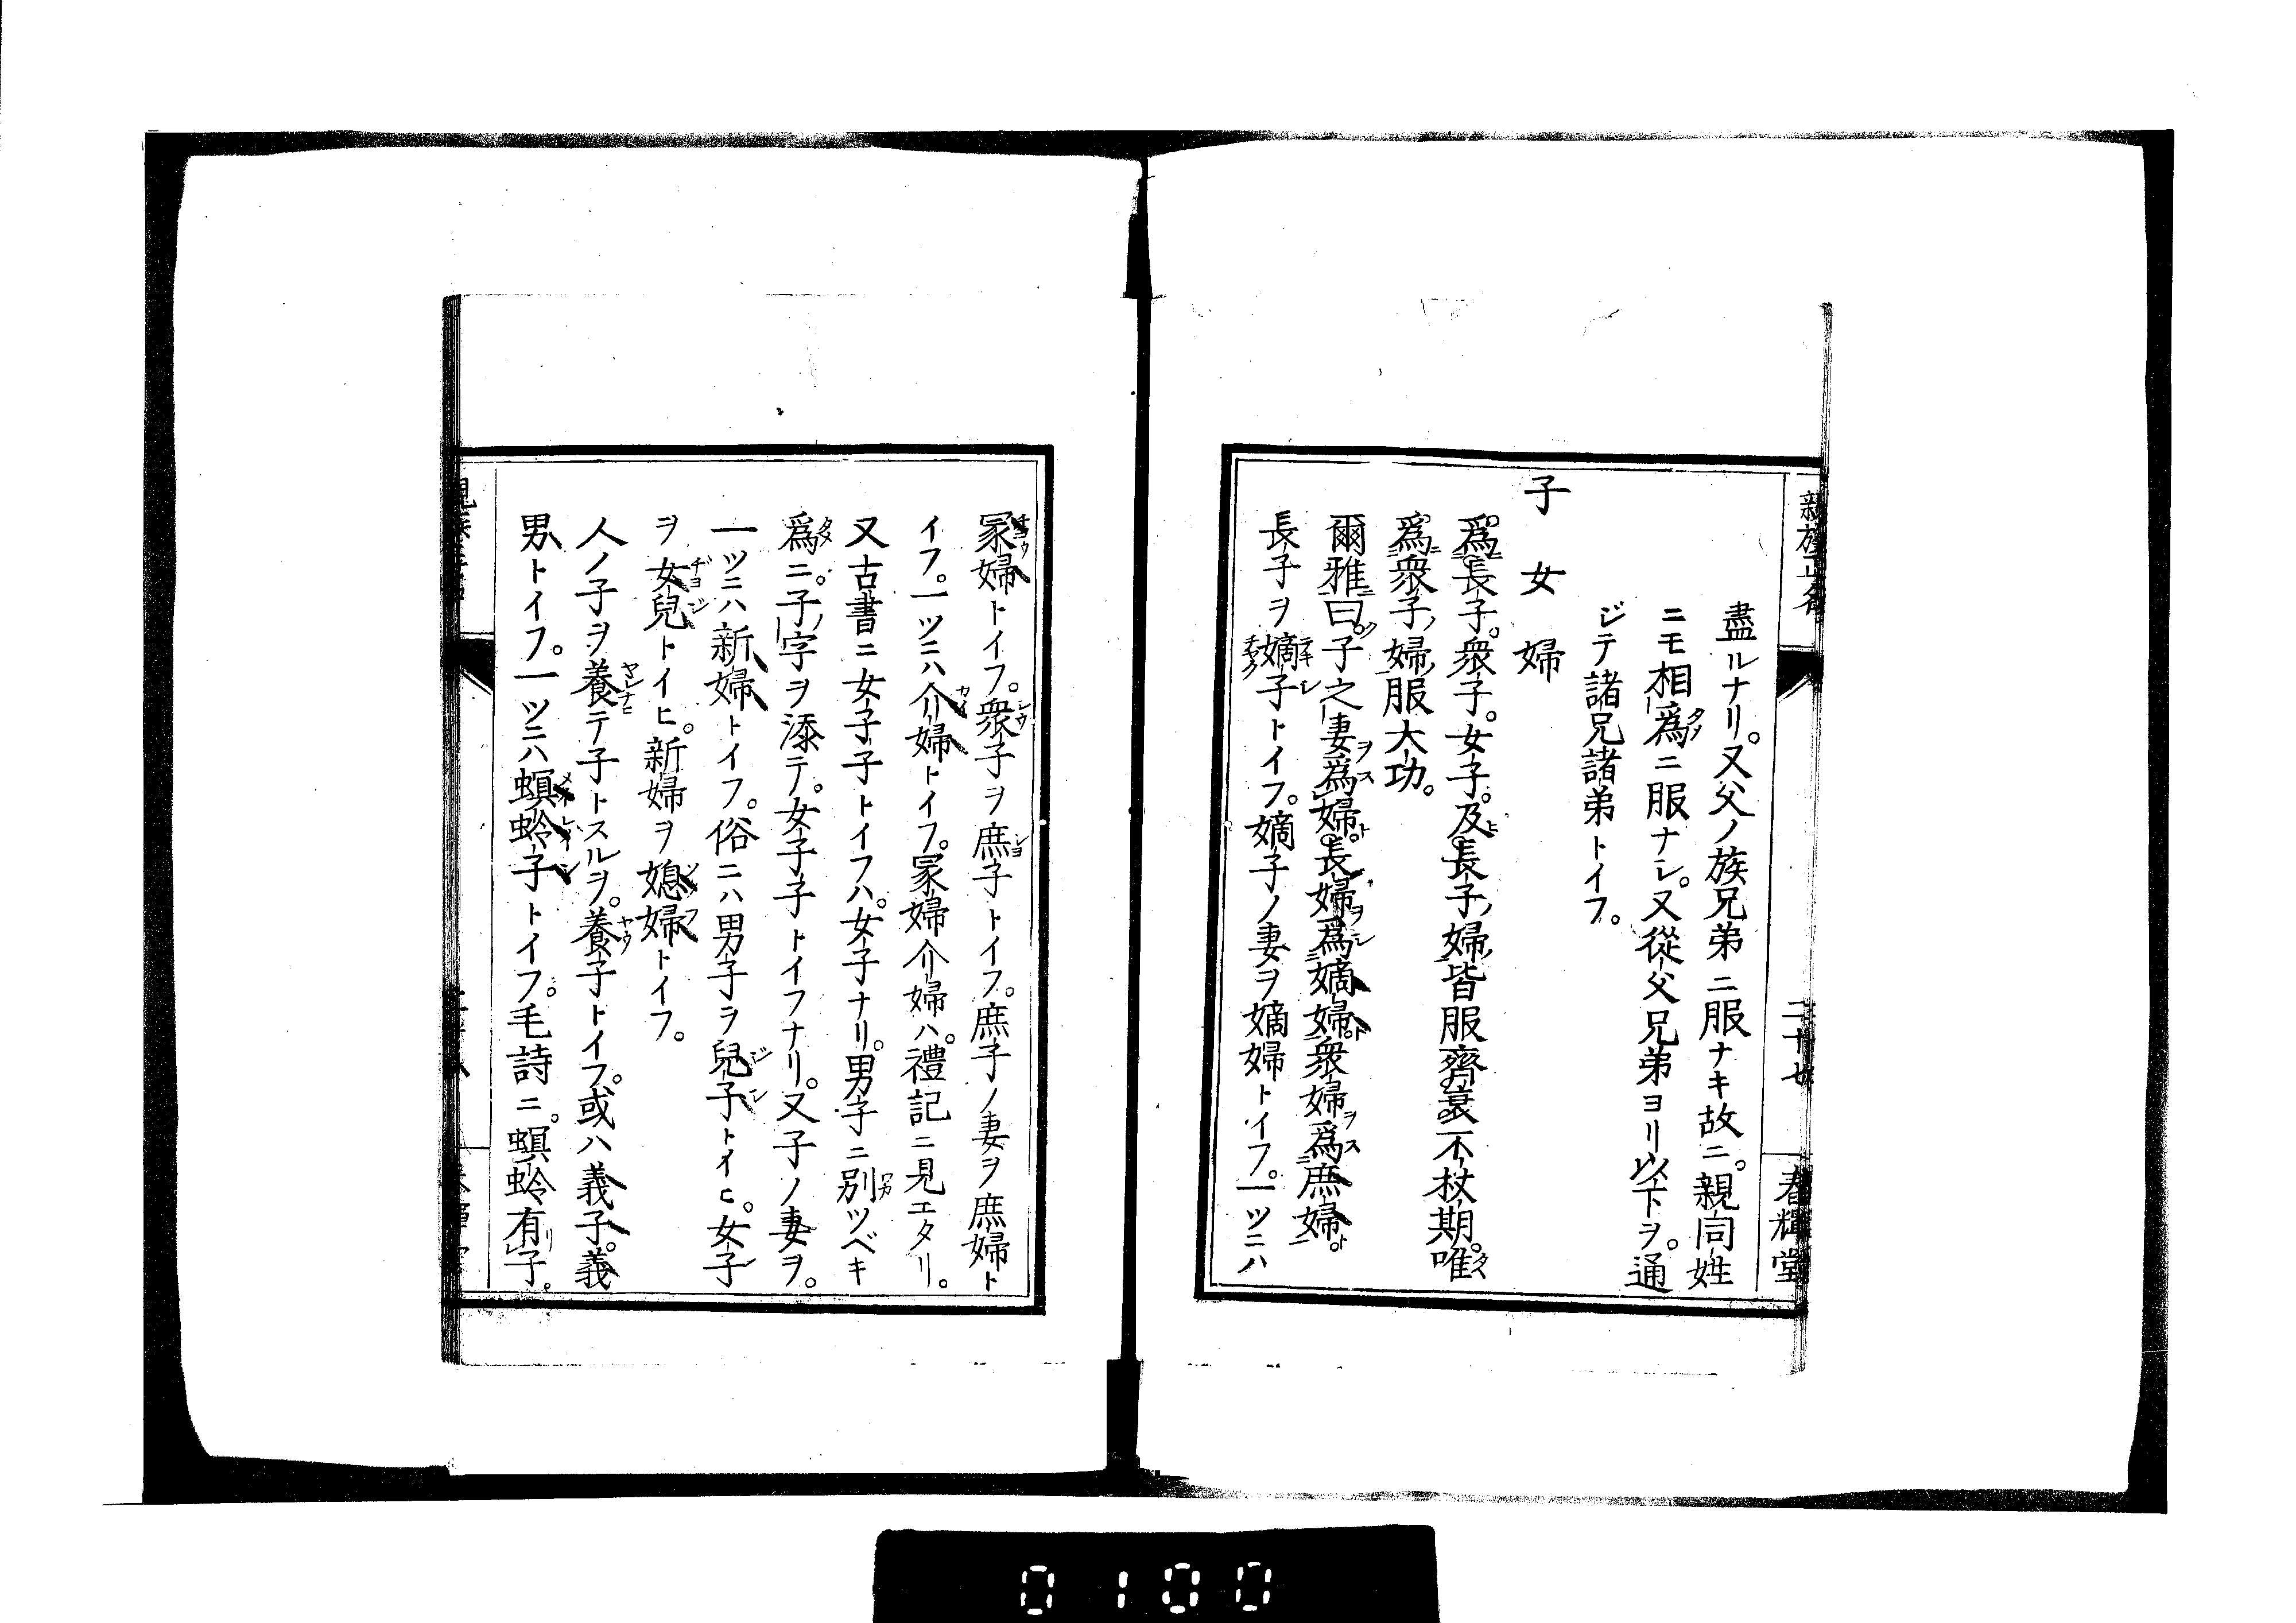 親族正名
二十七
春輝堂
盡ルナリ。又父ノ族兄弟ニ服ナキ故ニ。親同姓
ニモ相爲ニ服ナシ。又從父兄弟ヨリ以下ヲ。通
ジテ諸兄諸弟トイフ。
子女婦
爲長子。衆子。女子。及長子ノ婦。皆服齊衰不杖期。唯
爲衆子ノ婦ノ服大功。
爾雅曰。子之妻爲婦。長婦爲嫡婦。衆婦爲庶婦。
長子ヲ嫡子トイフ。嫡子ノ妻ヲ嫡婦トイフ。一ツニハ
冢婦トイフ。衆子ヲ庶子トイフ。庶子ノ妻ヲ庶婦ト
イフ。一ツニハ介婦トイフ。冢婦介婦ハ。禮記ニ見エタリ。
又古書ニ女子子トイフハ。女子ナリ。男子ニ別ツベキ
爲ニ。子ノ字ヲ添テ。女子子トイフナリ。又子ノ妻ヲ。
一ツニハ新婦トイフ。俗ニハ男子ヲ兒子トイヒ。女子
ヲ女兒トイヒ。新婦ヲ媳婦トイフ。
人ノ子ヲ養テ子トスルヲ。養子トイフ。或ハ義子。義
男トイフ。一ツニハ螟蛉子トイフ。毛詩ニ。螟蛉有子。
0100